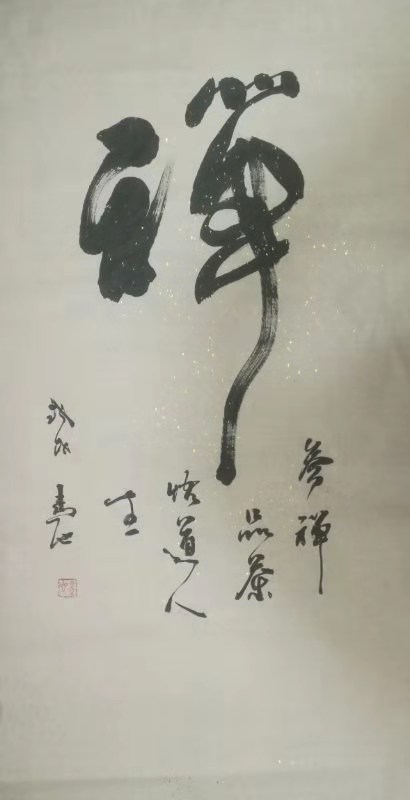 禪
參禪
品茶
悟道人
生